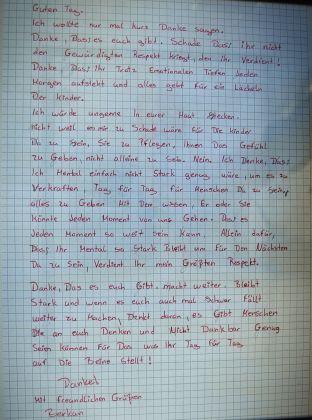 Guten Tag.
Ich wollte nur mal kurz Danke sagen.
Danke, Dass es euch gibt. Schade Dass ihr nicht
den Gewürdigten Respekt kriegt, den ihr Verdient!
Danke, Dass Ihr Trotz Emotionalen Tiefen Jeden
Morgen aufsteht und alles gebt Für ein Lächeln
Der Kinder.
Ich würde ungerne In eurer Haut stecken.
nicht weil es mir zu Schade wäre Für Die Kinder
Da zu Sein, Sie zu Pflegen, Ihnen Das Gefühl
zu Geben, nicht alleine zu Sein. Nein, Ich Denke, Dass
Ich Mental einfach nicht Stark genug wäre, um es zu
Verkraften, Tag für Tag für Menschen Da zu Sein,
alles zu Geben Mit Dem wissen, Er oder Sie
Könnte Jeden Moment von uns Gehen. Das es
Jeden Moment so weit sein Kann. Allein dafür,
Dass Ihr Mental so Stark Bleibt um Für Den Nächsten
Da zu Sein, Verdient Ihr mein Größten Respekt.
Danke, Das es euch Gibt. macht weiter. Bleibt
Stark und wenn es euch auch mal Schwer Fällt
weiter zu Machen, Denkt daran, es Gibt Menschen
Die an euch Denken und Nicht Dankbar Genug
Sein können Für Das was Ihr Tag Für Tag
auf Die Beine Stellt!
Danke!
Mit freundlichen Grüßen
Berkan